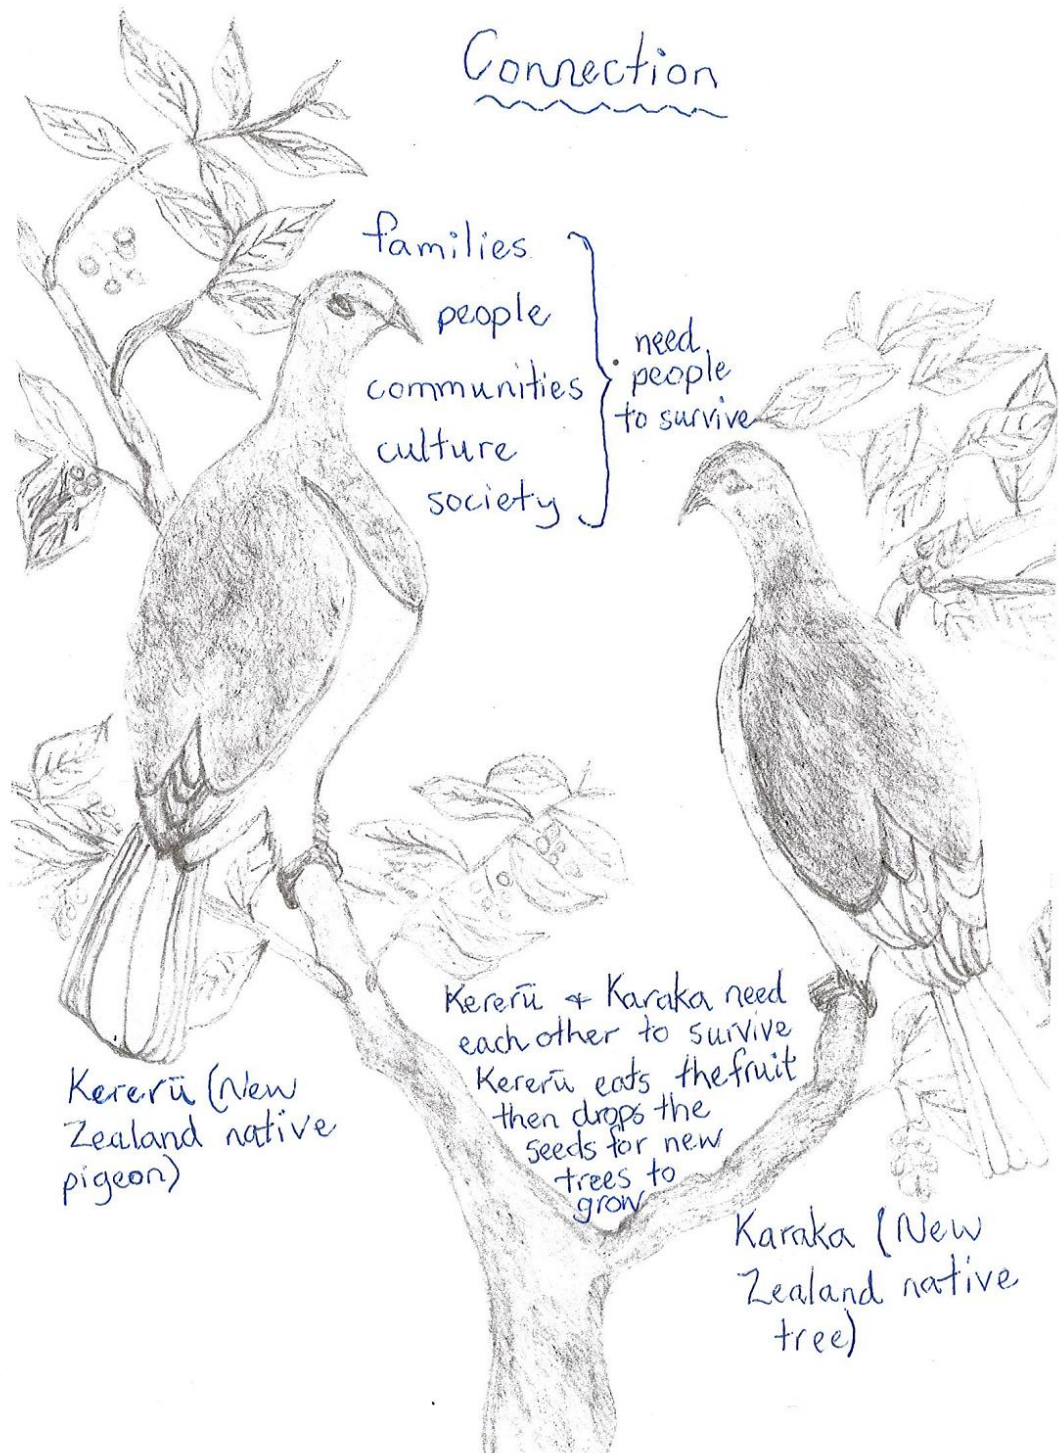 Connection
families
people
communities
culture
society
need
people
to survive
Kererū + Karaka need
each other to survive
Kererū eats the fruit
then drops the
seeds for new
trees to
grow
Kererū (New
Zealand native
pigeon)
Karaka (New
Zealand native
tree)